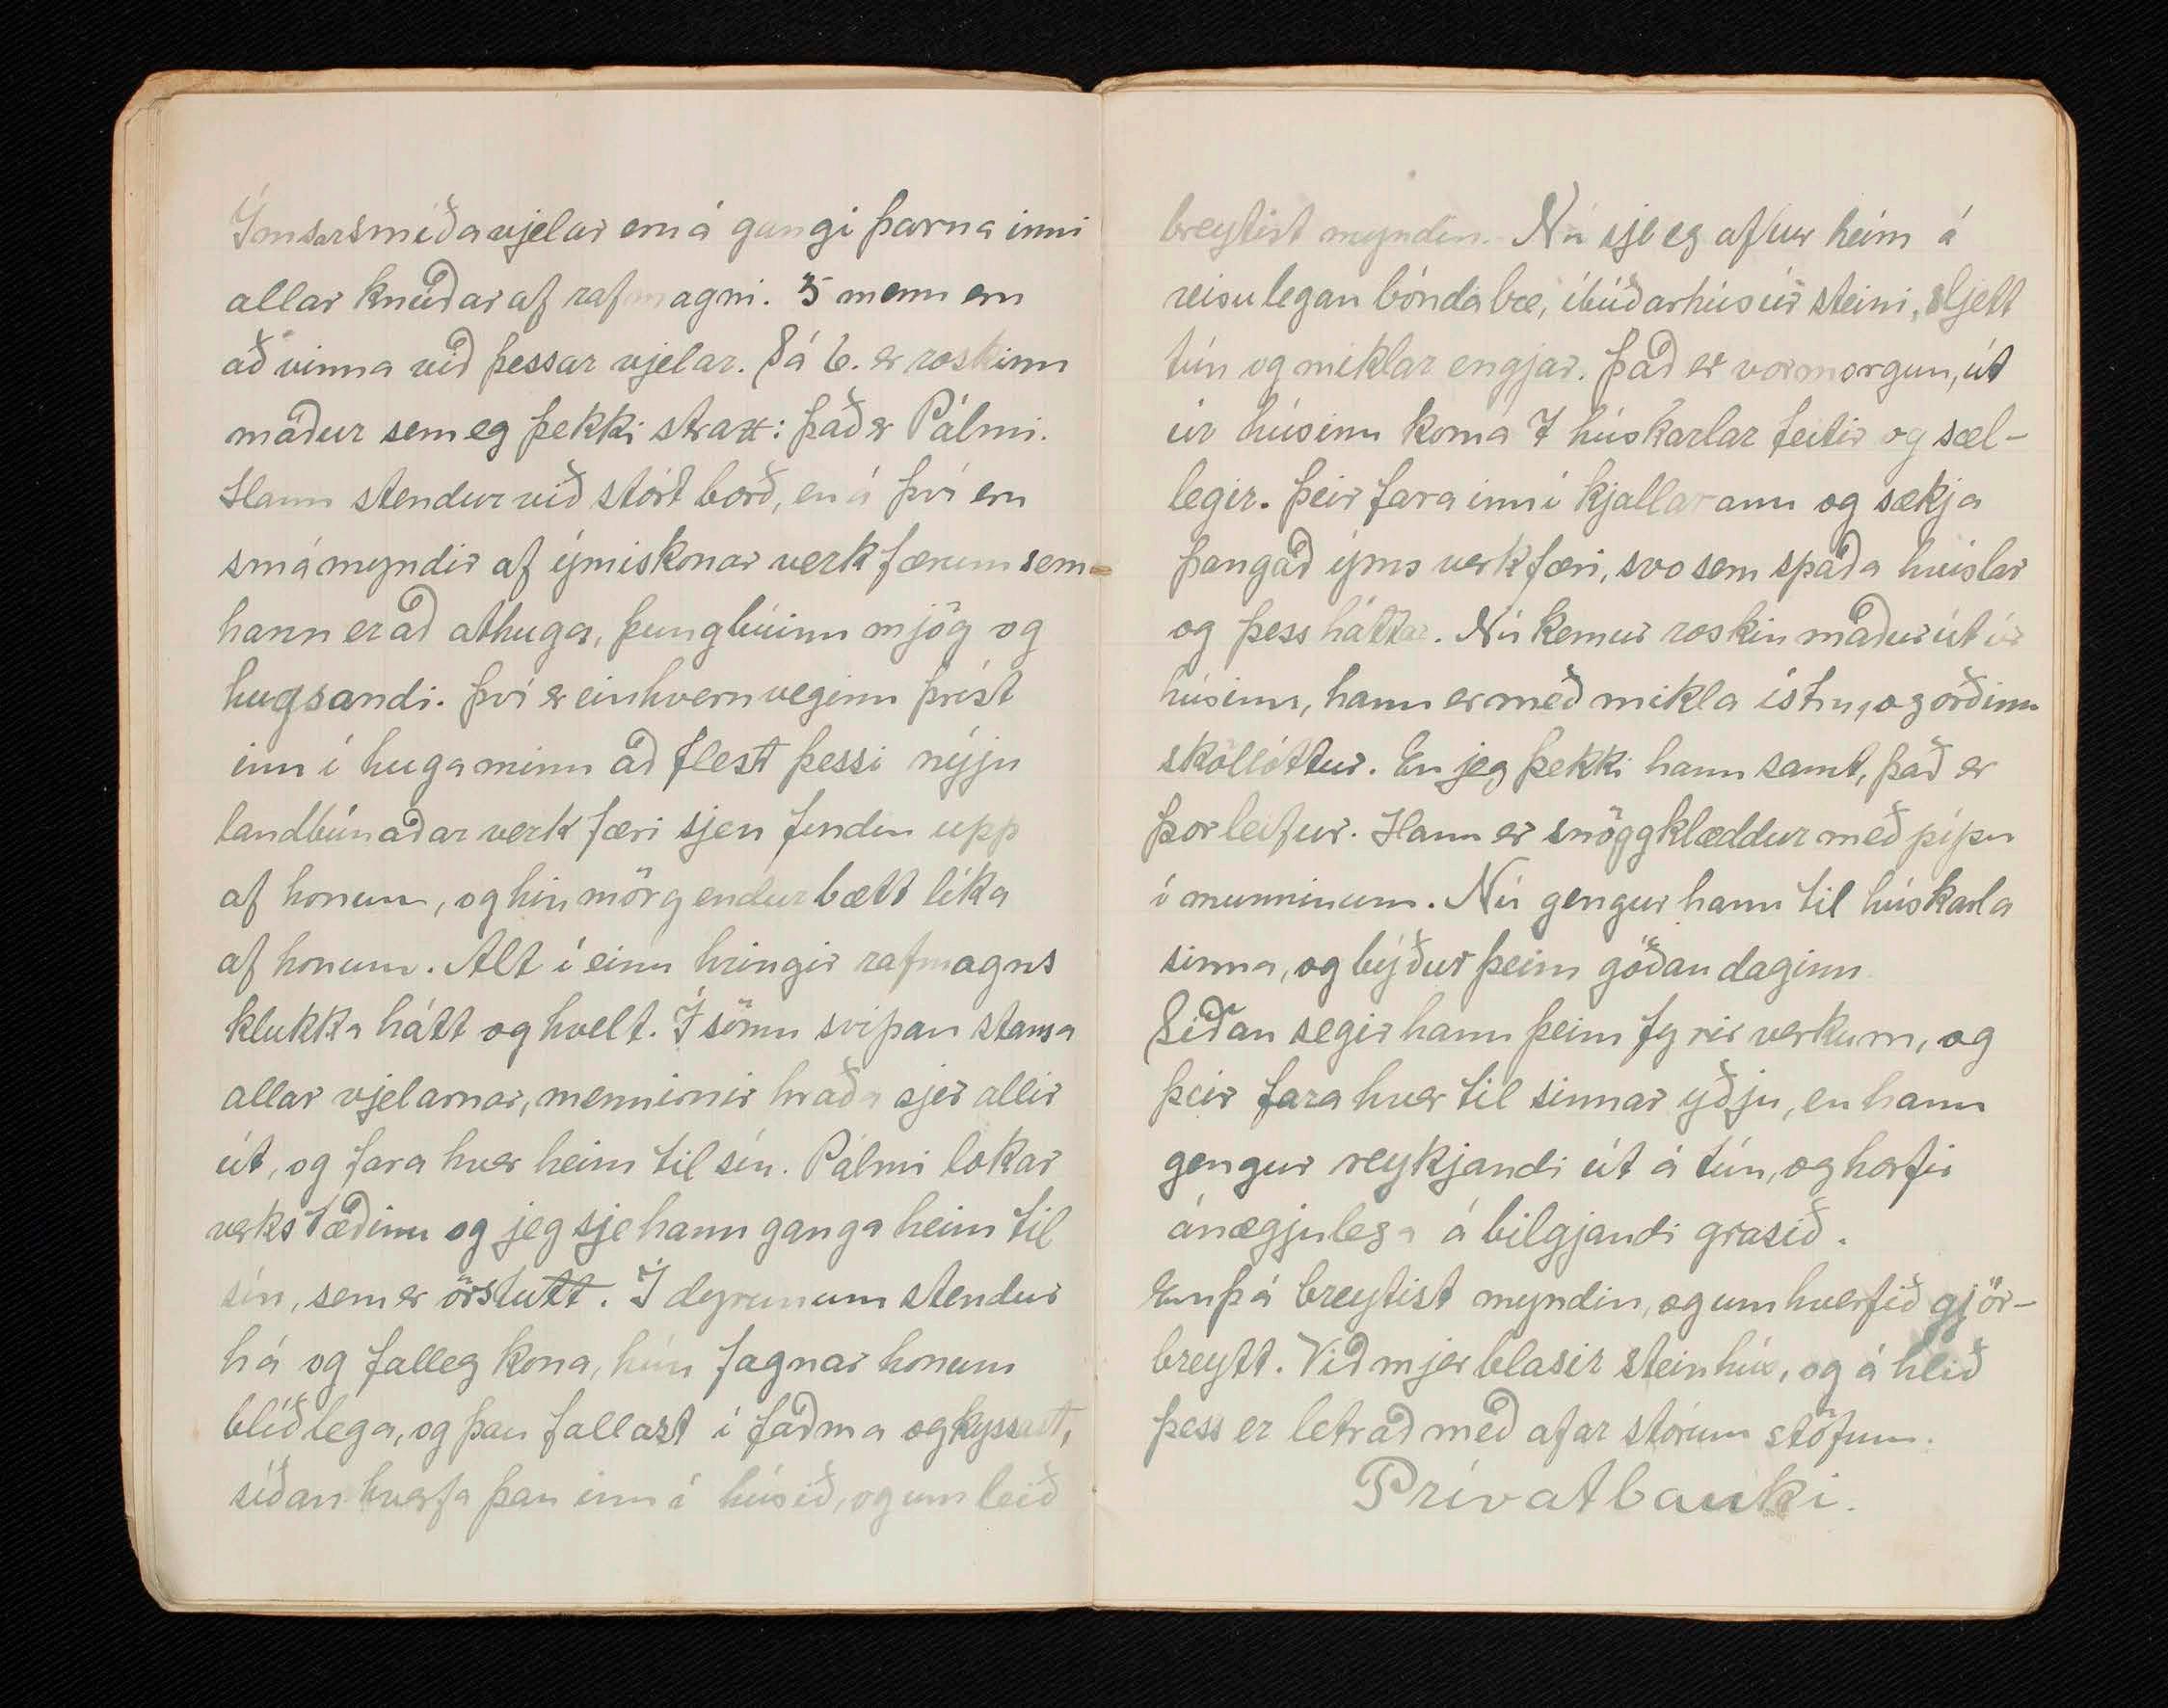 Ýmsar smíðavjelar eru á gangi þarna inni
allar knúðar af rafmagni. 5 menn eru
að vinna við þessar vjelar. Sá 6. er roskinn
maður sem eg þekki strax: það er Pálmi.
Hann stendur við stórt borð, en á því eru
smámyndir af ýmiskonar verkfærum sem
hann er að athuga, þungbúinn mjög og
hugsandi. Því er einhvernveginn þrist
inn í huga minn að flest þessi nýju
landbúnaðar verkfæri sjeu fundin upp
af honum, og hin mörg endurbætt líka
af honum. Alt í einu hringir rafmagns
klukka hátt og hvelt. Í sömu svipan stansa
allar vjelarnar, mennirnir hraða sjer allir
út, og fara hver heim til sín. Pálmi lokar
verkstæðinu og jeg sje hann ganga heim til
sín, sem er örstutt. Í dyrunum stendur
há og falleg kona, hún fagnar honum
blíðlega, og þau fallast í faðma og kyssast,
síðan hverfa þau inn í húsið, og um leið
breytist myndin. Nú sje eg aftur heim á
reisulegan bóndabæ, íbúðarhús úr steini, sljett
tún og miklar engjar. Það er vormorgun, út
úr húsinu koma 7 húskarlar feitir og sæl-
legir. Þeir fara inn í kjallarann og sækja
þangað ýms verkfæri, svo sem spaða hvislar
og þess háttar. Nú kemur roskin maður út úr
húsinu, hann er með mikla ístru, og orðinn
sköllóttur. En jeg þekki hann samt, það er
Þorleifur. Hann er snöggklæddur með pípu
í munninum. Nú gengur hann til húskarla
sinna, og býður þeim góðan daginn
Síðan segir hann þeim fyrir verkum, og
þeir fara hver til sinnar yðju, en hann
gengur reykjandi út á tún, og horfir
ánægjulega á bilgjandi grasið.
Enn þá breytist myndin, og umhverfið gjör-
breytt. Við mjer blasir steinhús, og á hlið
þess er letrað með afar stórum stöfum.
Prívatbanki.